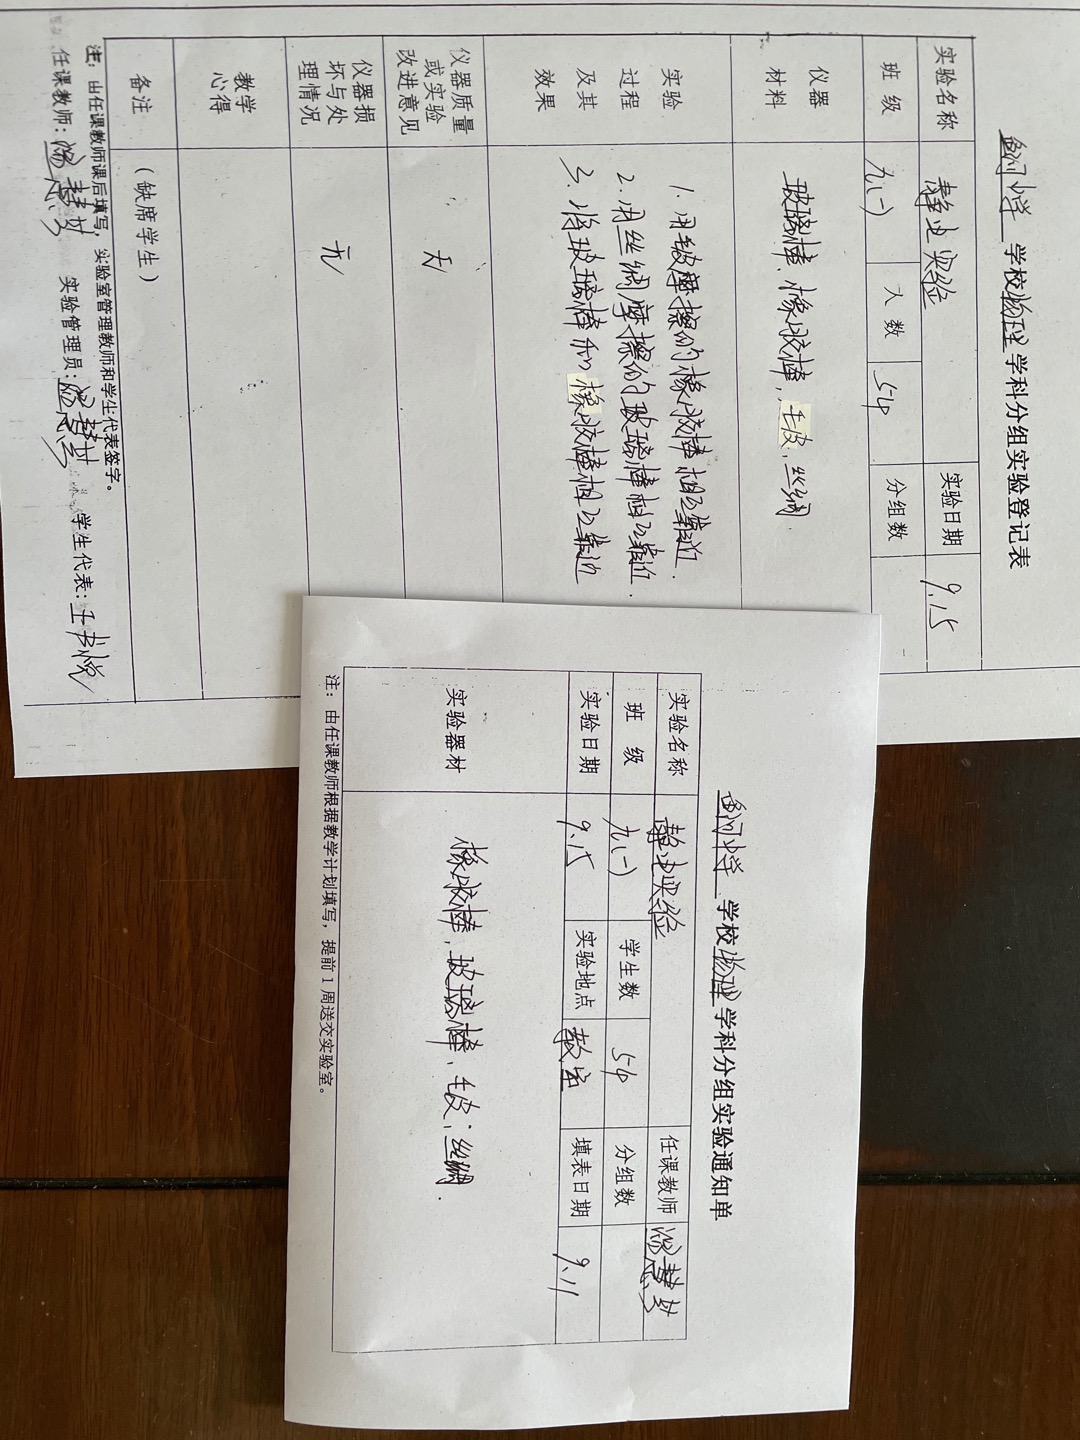 鱼河中学 学校物理学科分组实验登记表
实验名称 静电实验 实验日期 9.15
班 级 九(一) 人数 54 分组数
仪器材料 玻璃棒、橡胶棒，毛皮，丝绸.
实验过程及其效果
1. 用毛皮摩擦的橡胶棒相互靠近.
2. 用丝绸摩擦的玻璃棒相互靠近.
3. 将玻璃棒和橡胶棒相互靠近
仪器质量或实验改进意见 无
仪器损坏与处理情况 无
教学心得
备注 (缺席学生)
注：由任课教师课后填写，实验室管理教师和学生代表签字。
任课教师: 实验管理员: 学生代表: 王书悦
鱼河中学 学校物理学科分组实验通知单
实验名称 静电实验 任课教师
班 级 九(一) 学生数 54 分组数
实验日期 9.15 实验地点 教室 填表日期 9.11
实验器材 橡胶棒，玻璃棒、毛皮，丝绸.
注：由任课教师根据教学计划填写，提前1周送交实验室。